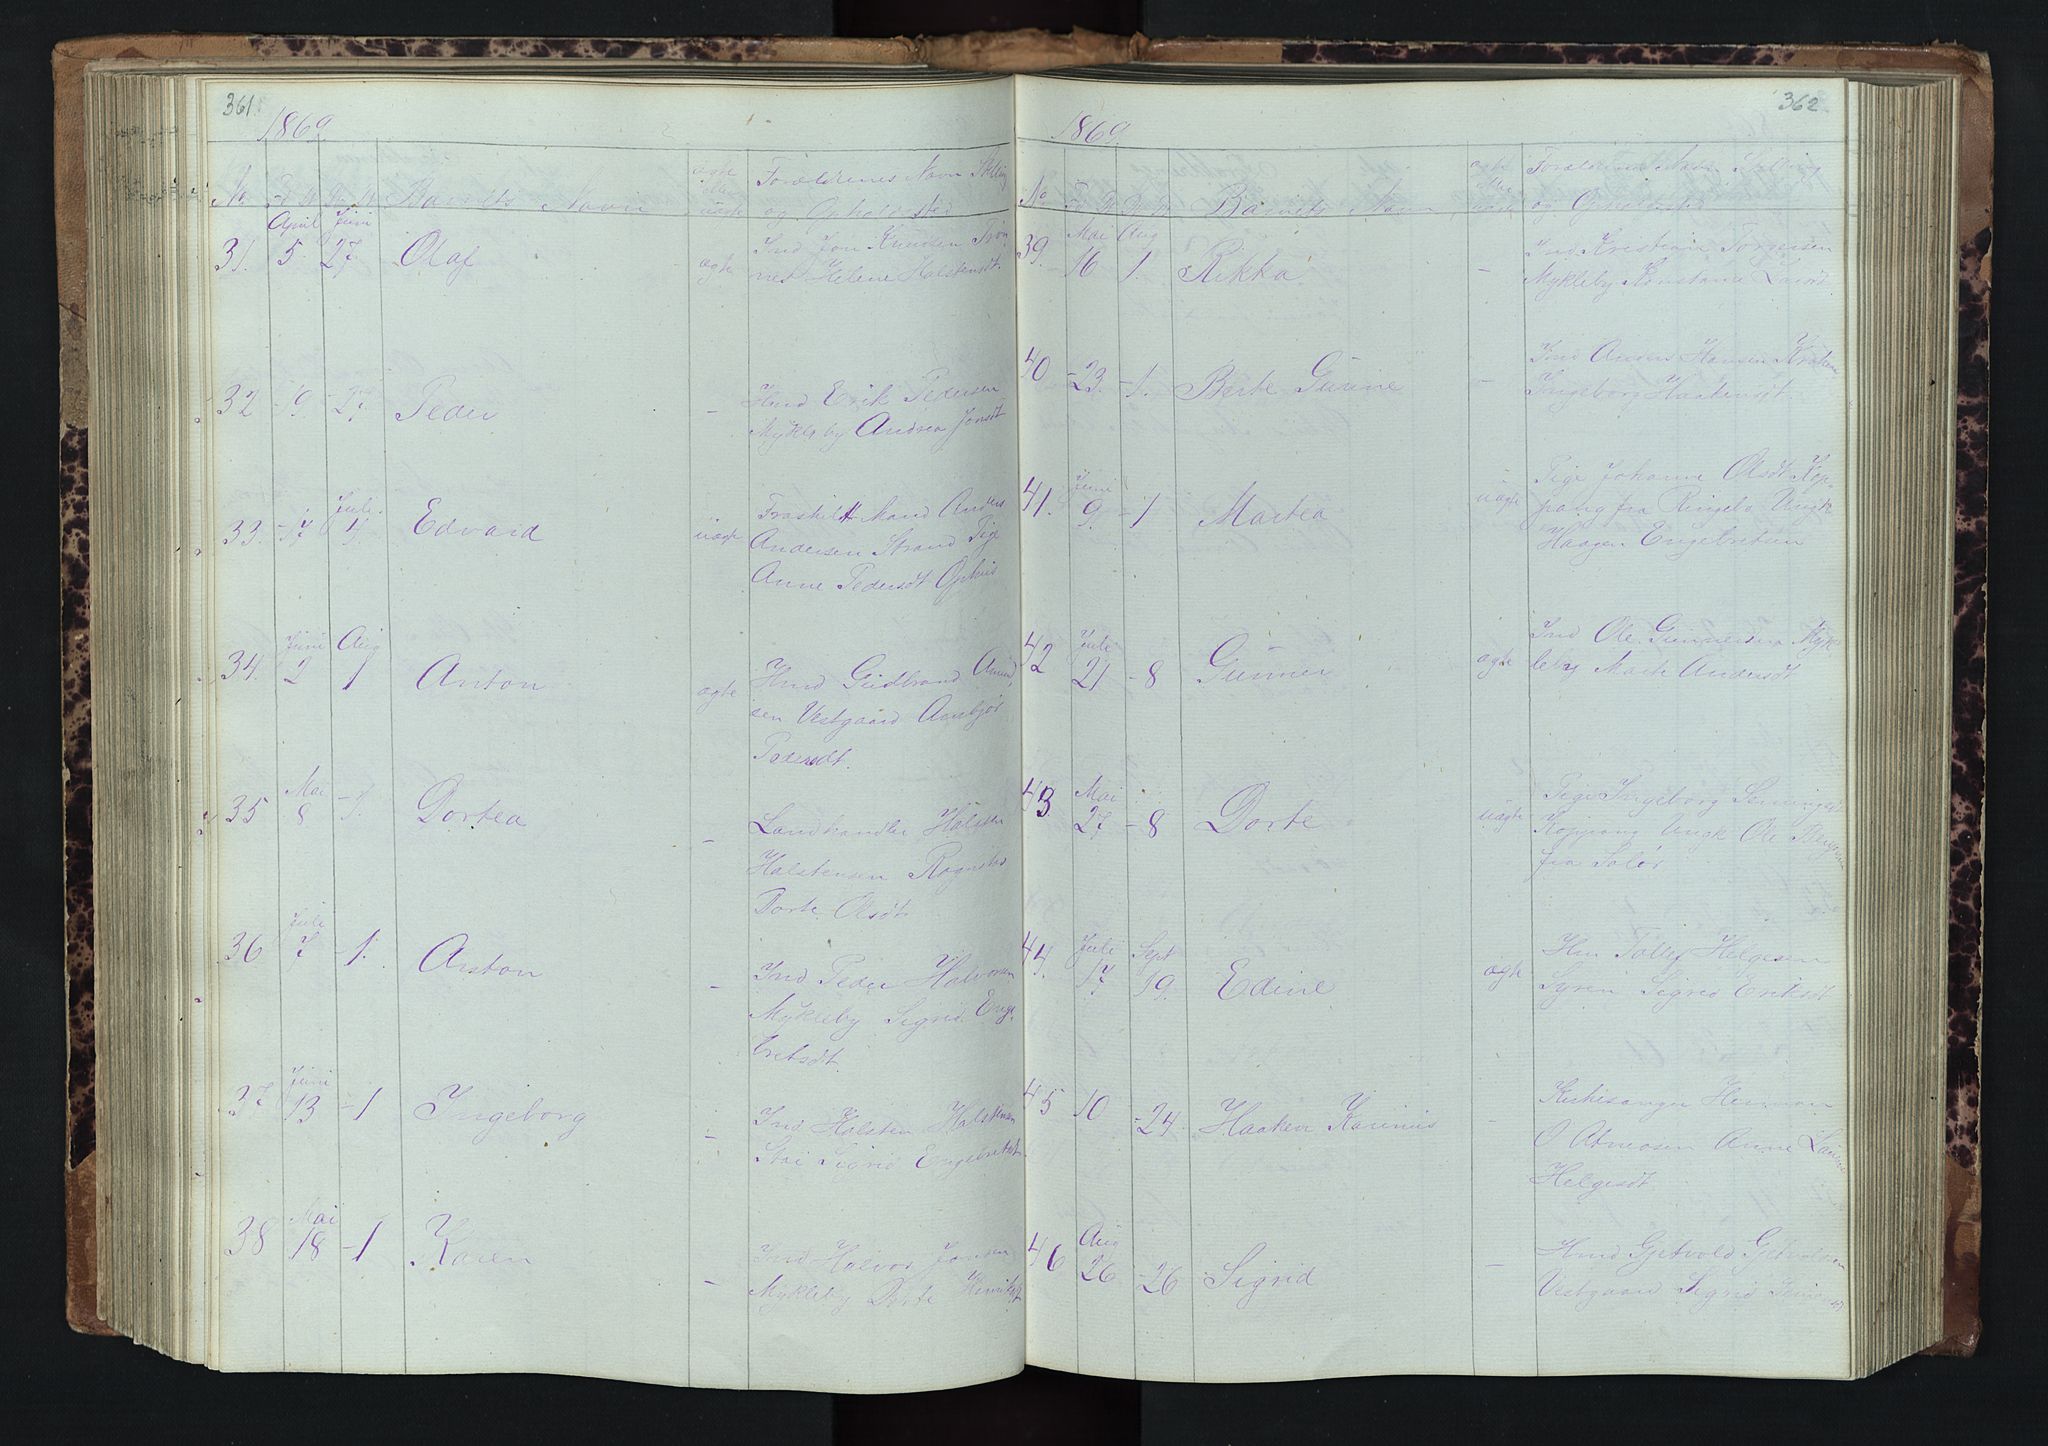 361.
1869
No F. D. Barnets Navn ægte eller uægte Forældrenes Navn Stilling
og Opholdsted
April Juni
31. 5. 27. Olaf ægte Ind Jon Knudsen Trøn
nes Helene Halstensdt.
32 - 9 - 27 Peder - Hmd Erik Pedersen
Mykleby Andrea Jonsdt
Juli
33. - 17 4. Edvard uægte Fraskilt Mand Anders
Andersen Strand Pige
Anne Pedersdt Ophus
Juni Aug
34. 2 1 Anton ægte Hmd Gudbrand Amund
sen Vestgaard Ambjør
Pedersdt.
Mai
35 8 - 1. Dortea - Landhandler Halsten
Halstensen
Dorte Olsdt
Juli
36 7 - 1. Anton - Ind Peder Halvorsen
Mykleby Sigrid Enge
bretsdt.
Juni
37 13 - 1 Ingeborg - Ind Halsten Halstensen
Stai Sigrid Engebretsdt
Mai
38 18 - 1 Karen - Ind Halvor Jonsen
Mykleby Dorte Henriksdt
362
1869
No Barnets Navn ægte eller uægte Forældrenes Navn Stilling
og Opholdsted
Mai Aug
39. 16 1. Rikka - Ind Kristian Torgersen
Mykleby Konstanse
40 - 23. - 1. Berte Gunine - Ind Anders Hansen
Ingeborg Haakensdt.
Juni
41. 9. - 1 Martea uægte Pige Johanne Olsdt Kop-
pang fra Ringebo Ungk
Haagen Engebretsen
Juli
42 21 - 8 Gunner ægte Ind Ole Gunnersen Myk
leby Marte Andersdt
Mai
43 27 - 8 Dorte uægte Pige Ingeborg
Koppang Ungk Ole
fra Solør
Juli Sept
44. 17 19. Edine ægte Hm Tollef Helgesen
Syren Sigrid Eriksdt
45 10 - 24. Haaken Karinius - Kirkesanger Herman
O Atneosen Anne
Helgesdt
Aug
46 26 - 26 Sigrid - Hmd Gjetvold Gjetvoldsen
Vestgaard Sigrid